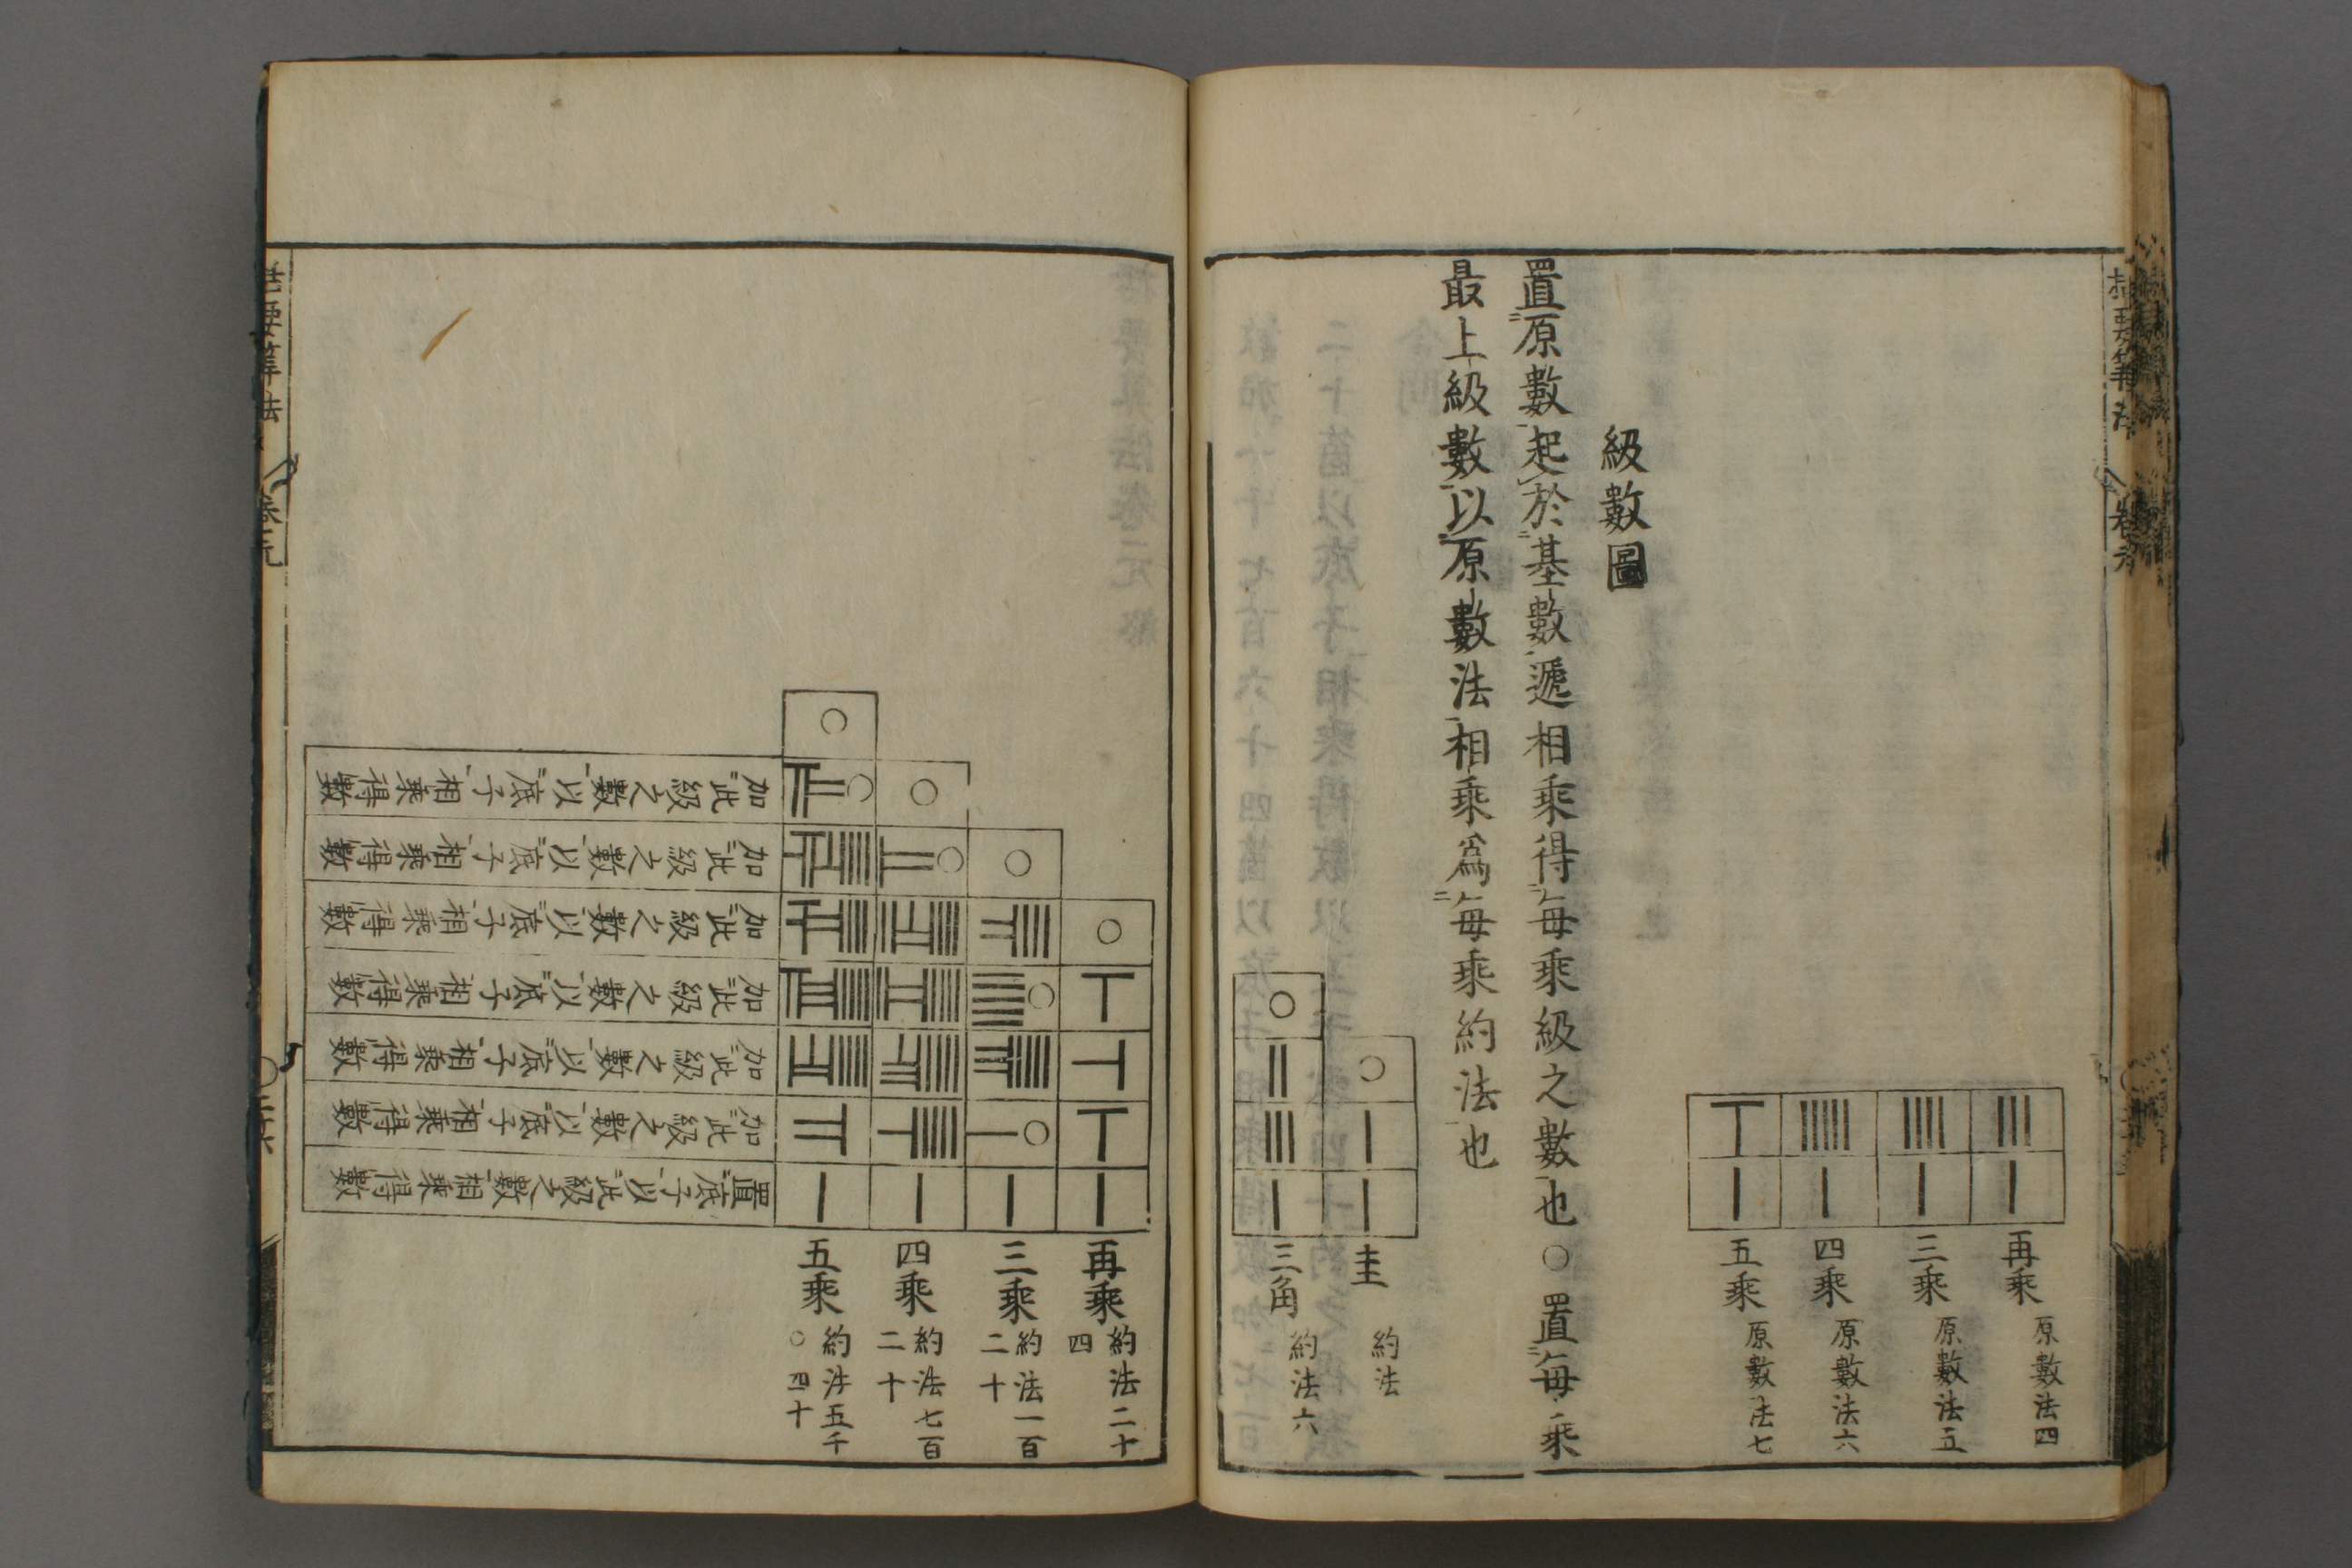 括要筭法
再乘 原數法四
三乘 原數法五
四乘 原數法六
五乘 原數法七
級數圖
置原數起於基數遞相乘得每乘級之數也○置每乘
最上級數以原數法相乘爲每乘約法也
圭 約法
三角 約法六
再乘 約法二十四
三乘 約法一百二十
四乘 約法七百二十
五乘 約法五千〇四十
加此級之數以底子相乘得數
加此級之數以底子相乘得數
加此級之數以底子相乘得數
加此級之數以底子相乘得數
加此級之數以底子相乘得數
加此級之數以底子相乘得數
置底子以此級之數相乘得數
括要筭法 卷元